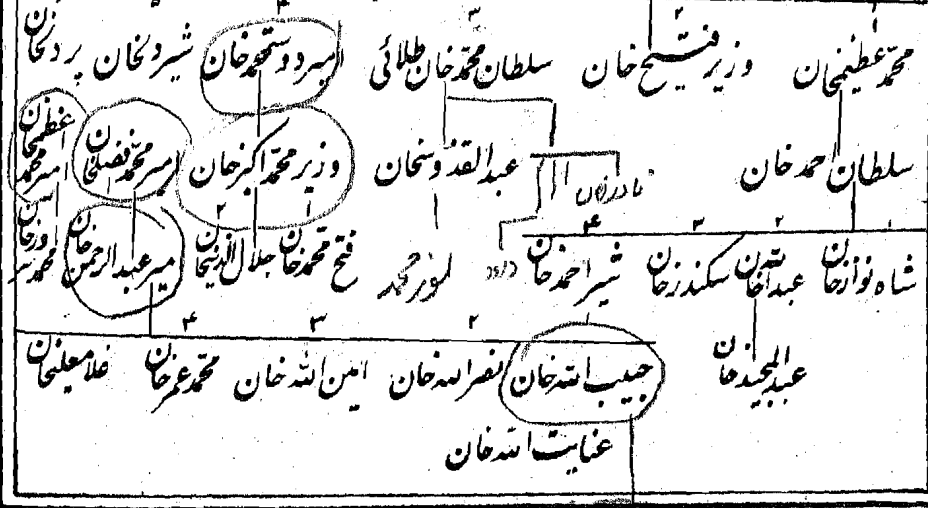 محمد عظیمخان وزیر فتح خان سلطان محمد خان طلائی امیر دوستمحمد خان شیردلخان پردلخان
سلطان احمد خان نادرخان عبدالقدوسخان وزیر محمد اکبر خان امیر محمد افضلخان امیر محمد اعظمخان
۱ ۲ ۳ ۴
شاه نواز خان عبدالله خان سکندر خان شیر احمد خان داود نور محمد فتح محمد خان جلال الدینخان امیر عبدالرحمن خان
۲ ۳ ۴
عبدالمجید خان حبیب الله خان نصرالله خان امین الله خان محمد عمر خان غلامعلیخان
عنایت الله خان